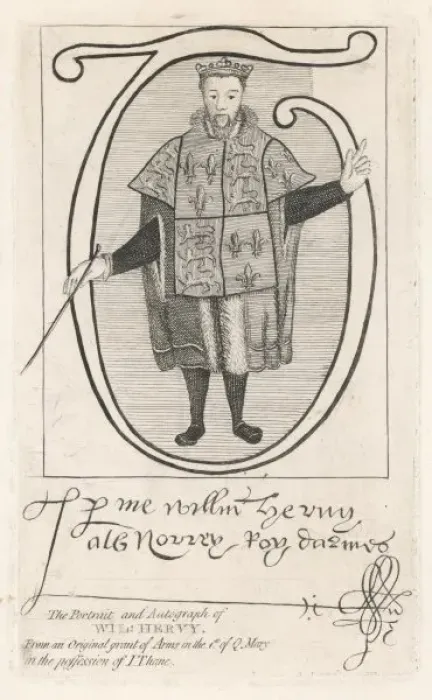 p me willm hervy
als Norrey Roy darmes
The Portrait and Autograph of
HERVY,
From an Original grant of Arms in the of Q. Mary
in the possession of I. Thane.